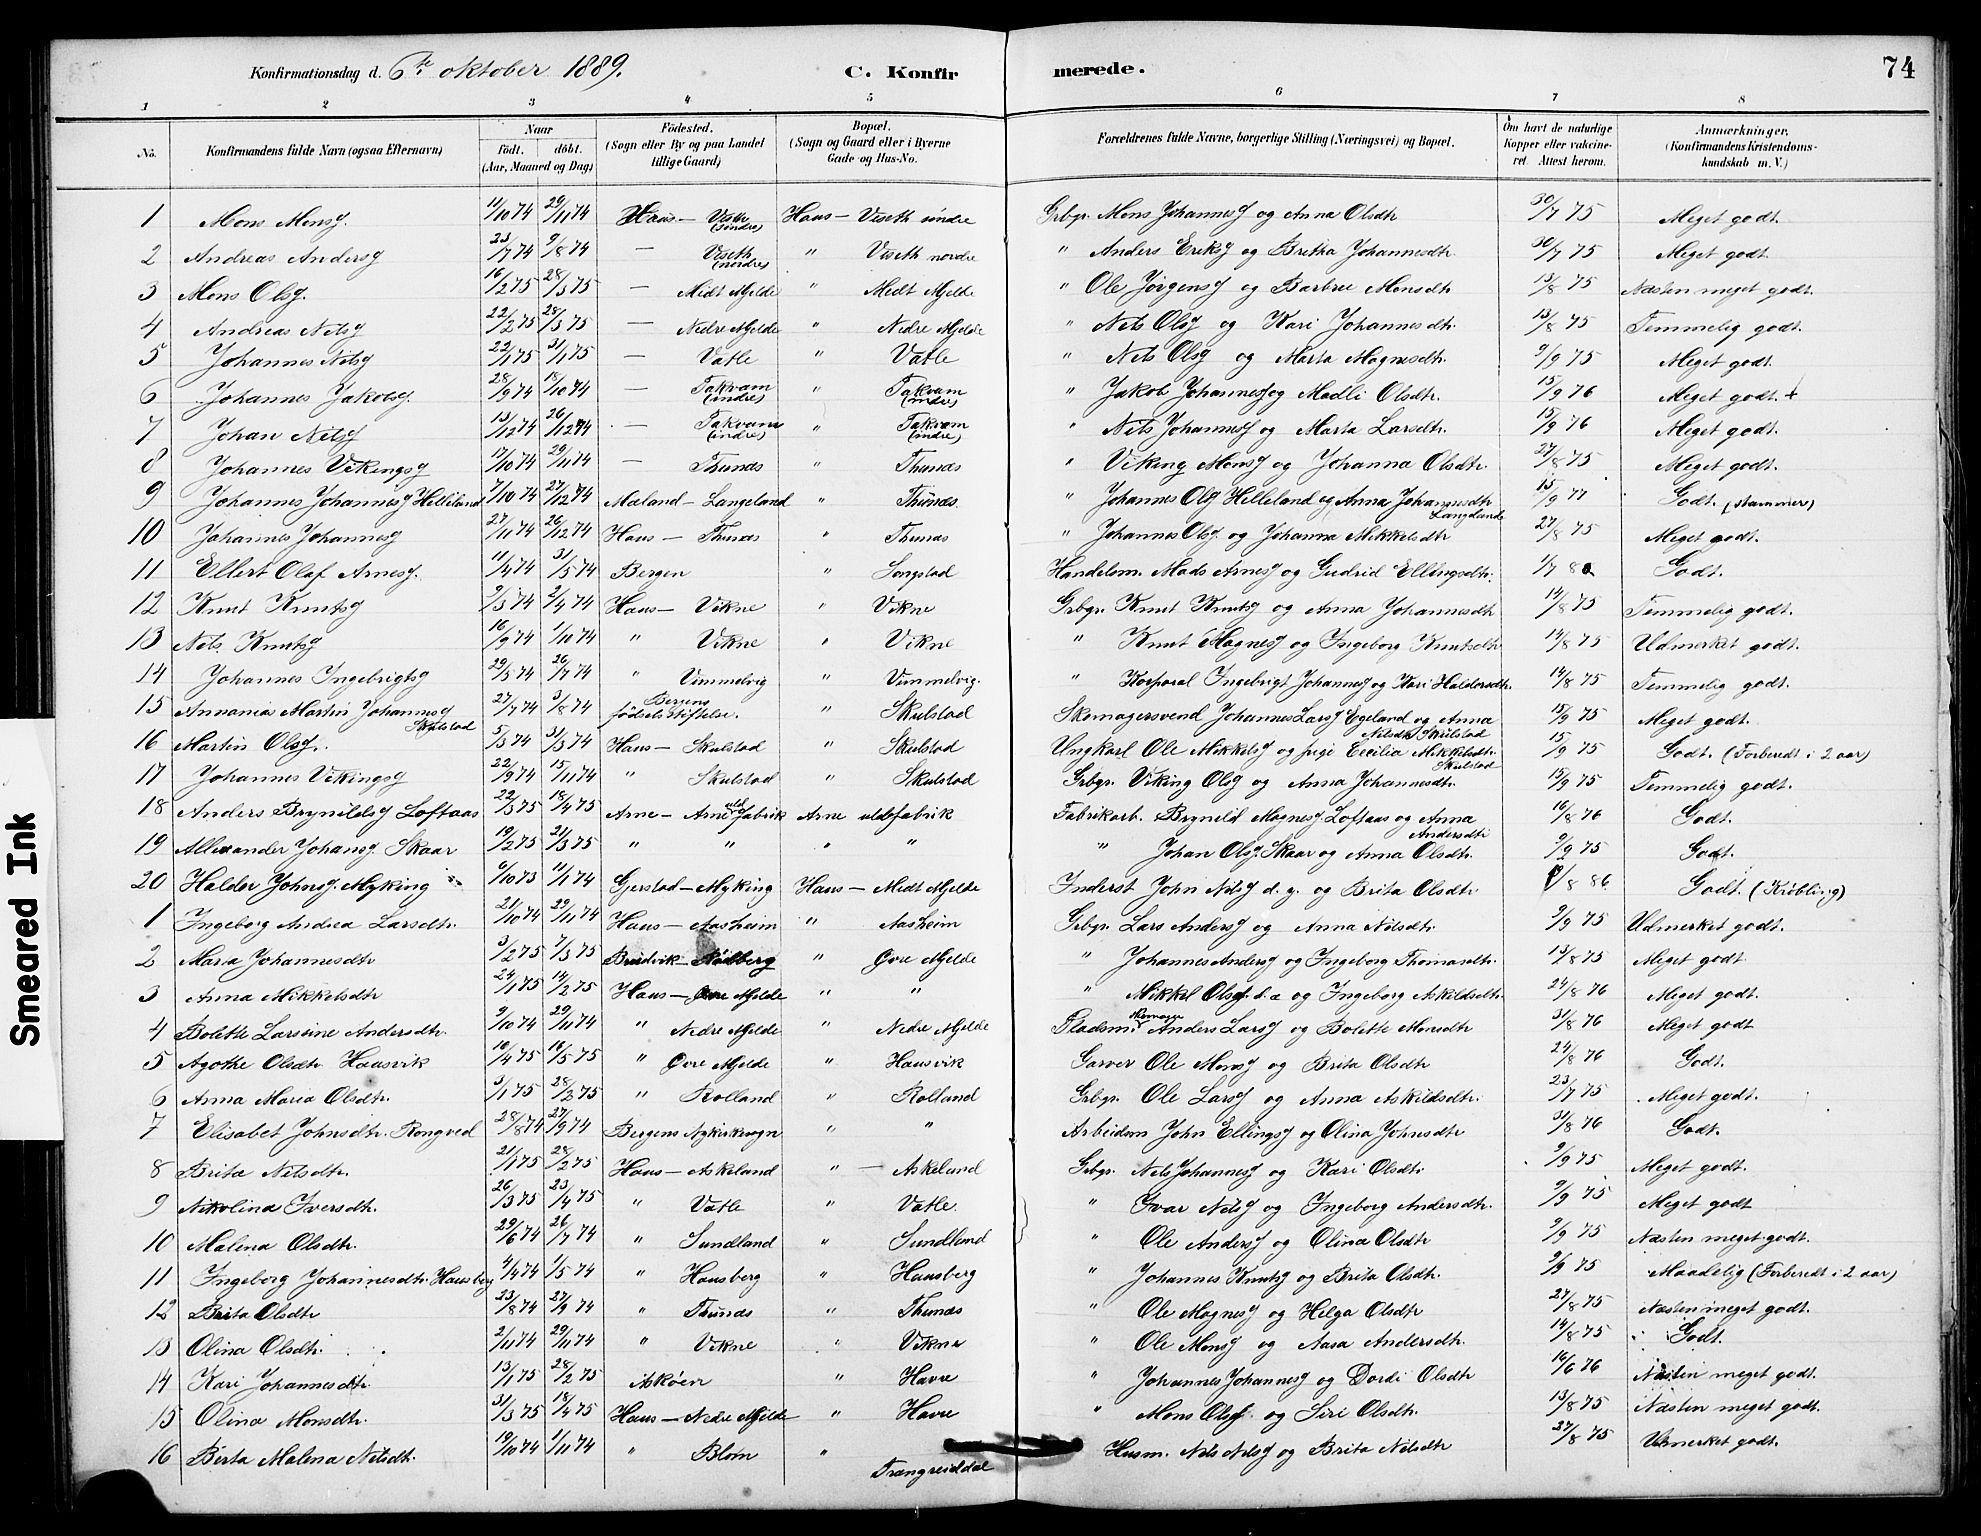 Konfirmationsdag d. 6te oktober 1889. C. Konfirmerede. 74
1 2 3 4 5 6 7 8
No. Konfirmandens fulde Navn (ogsaa Efternavn) Naar født. døbt. (Aar, Maaned og Dag) Fødested. (Sogn eller By og paa Landet tillige Gaard) Bopæl. (Sogn og Gaard eller i Byerne Gade og Hus-No. Forældrenes fulde Navne, borgerlige Stilling (Næringsvei) og Bopæl. Om havt de naturlige Kopper eller vakcineret. Attest herom. Anmærkninger. (Konfirmandens Kristendomskundskab m. V.)
1 Mons Monsʃ. 11/10 74 29/11 74 Haus — (søndre) Haus — Viseth søndre Grbgr. Mons Johannesʃ og Anna Olsdtr 30/7 75 Meget godt.
2 Andreas Andersʃ 23/7 74 9/8 74 — Viseth (nordre) " Viseth nordre " Anders Eriksʃ og Bretha Johannesdtr. 30/7 75 Meget godt.
3 Mons Olsʃ. 16/2 75 28/3 75 — Midt Mjelde " Midt Mjelde " Ole Jørgensʃ og Barbru Monsdtr 13/8 75 Næsten meget godt.
4 Andreas Nelsʃ 22/2 75 28/3 75 — Nedre Mjelde " Nedre Mjelde " Nels Olsʃ og Kari Johannesdtr. 13/8 75 Temmelig godt.
5 Johannes Nelsʃ 22/1 75 31/1 75 — Vatle " Vatle " Nels Olsʃ og Marta Magnesdtr. 9/9 75 Meget godt.
6 Johannes Jakobsʃ. 28/9 74 18/10 74 — Takvam (indre) " Takvam (indre) " Jakob Johannesʃ og Madli Olsdtr. 15/9 76 Meget godt. +
7 Johan Nelsʃ 13/12 74 26/12 74 — Takvam (indre) " Takvam (indre) " Nels Johannesʃ og Marta Larsdtr. 15/9 76 Meget godt.
8 Johannes Vikingsʃ 17/10 74 29/11 74 — Thunæs " Thunæs " Viking Monsʃ og Johanna Olsdtr. 27/8 75 Meget godt.
9 Johannes Johannesʃ Helleland 7/10 74 27/12 74 Maland — Langeland " Thunæs. " Johannes Olsʃ Helleland og Anna Johannesdtr Langelande 15/9 77 Godt. (stammer)
10 Johannes Johannesʃ 27/11 74 26/12 74 Haus — Thunæs " Thunæs " Johannes Olsʃ. og Johanna Mikkelsdtr 27/8 75 Meget godt.
11 Ellert Olaf Arnesʃ. 11/4 74 31/5 74 Bergen " Songstad Handelsm. Mads Arnesʃ og Gudrid Ellingsdtr. 1/7 80 Godt.
12 Knut Knutsʃ 9/3 74 2/4 74 Haus — Vikne " Vikne Grbgr. Knut Knutsʃ og Anna Johannesdtr 14/8 75 Temmelig godt.
13 Nels Knutsʃ 16/9 74 1/10 74 " Vikne " Vikne " Knut Magnesʃ og Ingeborg Knutsdtr 14/8 75 Udmerket godt.
14 Johannes Ingebrigtsʃ 29/5 74 26/7 74 " Vimmelvig " Vimmelvig. " Korporal Ingebrigt Johannesʃ og Kari Haldorsdtr. 14/8 75 Temmelig godt.
15 Annanias Martin Johannesʃ Skulstad 27/7 74 3/8 74 Bergens fødselsstiftelse. " Skulstad Skomagersvend Johannes Larsʃ Egeland og Anna Nelsdtr Skulstad 15/9 75 Meget godt.
16 Martin Olsʃ. 5/3 74 31/3 74 Haus — Skulstad " Skulstad Ungkarl Ole Mikkelsʃ og pige Cecilia Mikkelsdtr. Skulstad 15/9 75 Godt. (Forberedt i 2 aar)
17 Johannes Vikingsʃ 22/9 74 15/11 74 " Skulstad " Skulstad Grbgr. Viking Olsʃ og Anna Johannesdtr. 15/9 75 Temmelig godt.
18 Anders Brynildsʃ Loftaas 22/3 75 18/4 75 Arne — Arne uldfabrik Arne uldefabrik Fabrikarb. Bryneld Magnesʃ Loftaas og Anna Andersdtr 16/8 76 Godt.
19 Allexander Johansʃ. Skaar 19/2 75 21/3 75 " " " " " Johan Olsʃ. Skaar og Anna Olsdtr. 9/9 75 Godt.
20 Haldor Johnsʃ. Myking 6/10 73 11/1 74 Gjerstad — Myking Haus — Midt Mjelde Inderst John Nelsʃ d. y. og Brita Olsdtr /8 86 Godt. (Krøbling)
1 Ingeborg Andrea Larsdtr. 21/10 74 29/11 74 Haus — Aasheim " Aasheim Grbgr. Lars Andersʃ og Anna Nilsdtr 9/9 75 Udmerket godt.
2 Maria Johannesdtr 3/2 75 7/3 75 Bredvik — Nødberg " Øvre Mjelde " Johannes Andersʃ og Ingeborg Thomasdtr. 13/8 75 Meget godt
3 Anna Mikkelsdtr 24/1 75 14/2 75 Haus — Øvre Mjelde " " " Mikkel Olsʃ. d. æ og Ingeborg Askildsdtr. 24/8 76 Meget godt.
4 Bolette Larsine Andersdtr. 9/10 74 29/11 74 " Nedre Mjelde " Nedre Mjelde Pladsm. Skomager Anders Larsʃ og Bolette Monsdtr 31/8 76 Meget godt
5 Agothe Olsdtr. Hausvik 10/4 75 16/5 75 " Øvre Mjelde " Hausvik Garver Ole Monsʃ og Brita Olsdtr 24/8 76 Godt.
6 Anna Maria Olsdtr. 3/1 75 28/2 75 " Rolland " Rolland Grbgr. Ole Larsʃ og Anna Askildsdtr. 23/7 75 Meget godt.
7 Elisabet Johnsdtr. Rongved 28/8 74 27/9 74 Bergens Nykirkesogn " " Arbeidsm John Ellingsʃ og Olina Johnsdtr 31/8 76 Godt.
8 Brita Nelsdtr. 21/1 75 28/2 75 Haus — Askeland " — Askeland Grbgr. Nels Johannesʃ og Kari Olsdtr. 9/9 75 Meget godt.
9 Nikolina Iversdtr. 26/3 75 23/4 75 " Vatle " Vatle. " Ivar Nelsʃ og Ingeborg Andersdtr. 9/9 75 Meget godt
10 Malena Olsdtr. 29/6 74 26/7 74 " Sundland " Sundland " Ole Andersʃ og Olina Olsdtr. 9/9 75 Næsten meget godt.
11 Ingeborg Johannesdtr. Hausberg 4/4 74 1/5 74 " Hausberg " Hausberg " Johannes Knutsʃ og Brita Olsdtr. 9/9 75 Maadelig (Forberedt i 2 aar)
12 Brita Olsdtr 23/8 74 27/9 74 " Thunæs " Thunæs " Ole Magnesʃ og Helga Olsdtr 27/8 75 Næsten meget godt.
13 Olina Olsdtr. 2/11 74 29/11 74 " Vikne " Vikne " Ole Monsʃ og Aasa Andersdtr. 14/8 75 Godt.
14 Kari Johannesdtr. 13/1 75 28/2 75 Askøen " Havre " Johannes Johannesʃ og Dordi Olsdtr 16/6 76 Næsten meget godt.
15 Olina Monsdtr. 31/3 75 18/4 75 Haus — Nedre Mjelde " Havre " Mons Olsʃ. og Siri Olsdtr. 13/8 75 Næsten meget godt.
16 Berta Malena Nelsdtr. 19/10 74 1/11 74 " Blom " Trængreiddal Husm. Nels Nelsʃ og Brita Nelsdtr 27/8 75 Udmerket godt.
Smeared Ink